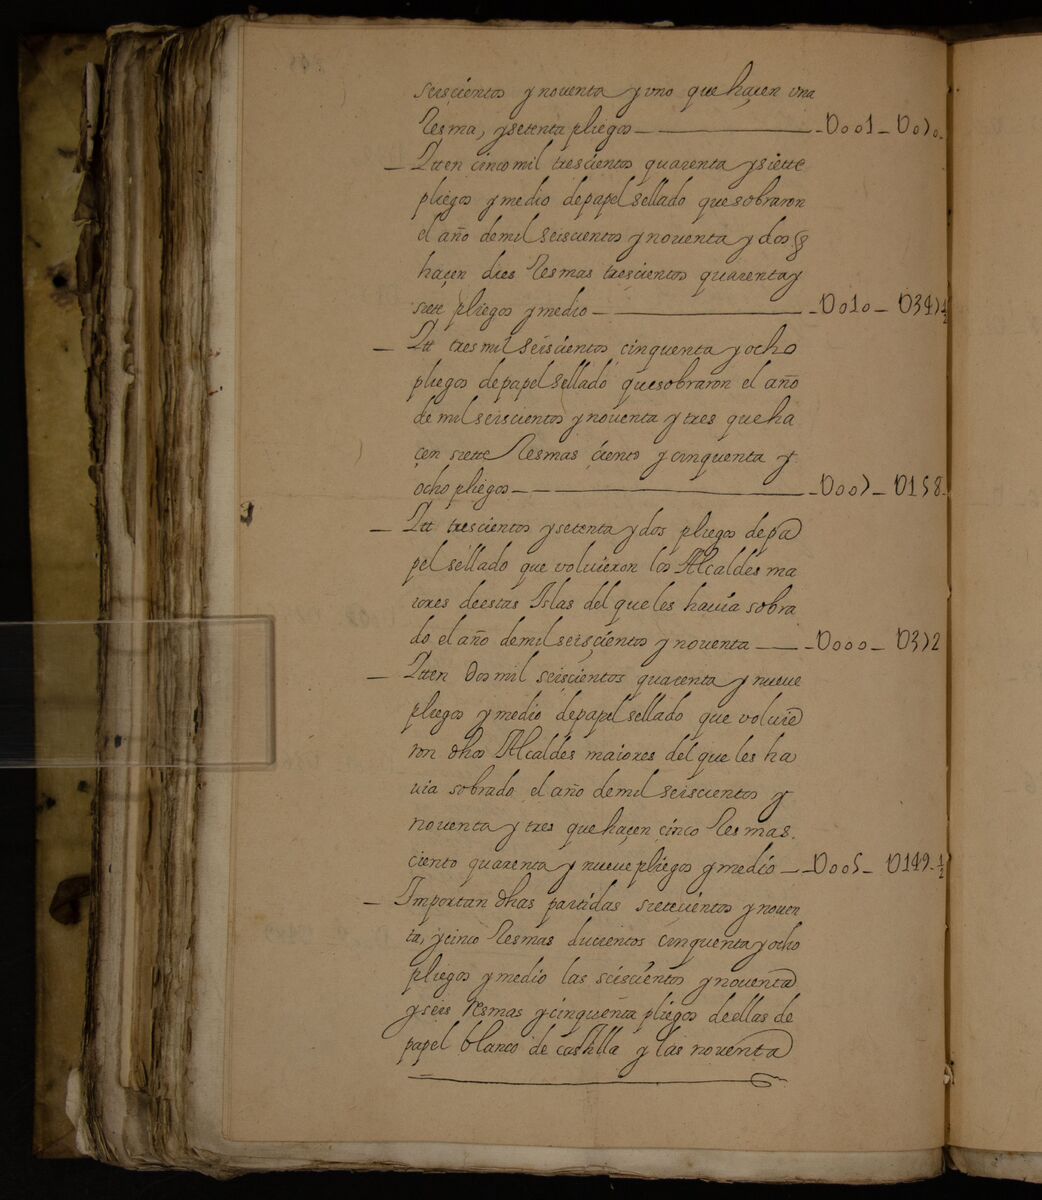 seiscientos y noventa y uno que haçen una
Resma, y setenta pliegos — U001 — U070.
— Itten cinco mil trescientos quarenta y siette
pliegos y medio de papel sellado que sobraron
el año de mil seiscientos y noventa y dos q
haçen dies Resmas trescientos quarenta y
siete pliegos y medio — U010 — U347 1/2
— Itt tres mil seiscientos cinquenta y ocho
pliegos de papel sellado que sobraron el año
de mil seiscientos y noventa y tres que ha
çen siette Resmas ciento y cinquenta y
ocho pliegos — U007 — U158.
— Itt trescientos y setenta y dos pliegos de pa
pel sellado que volvieron los Alcaldes ma
iores de estas Islas del que les havia sobra
do el año de mil seisçientos y noventa — U000 — U372
— Itten dos mil seiscientos quarenta y nueve
pliegos y medio de papel sellado que volvie
ron dhos Alcaldes maiores del que les ha
via sobrado el año de mil seiscientos y
noventa y tres que haçen cinco Resmas.
ciento quarenta y nueve pliegos y medio — U005 — U149 1/2
— Importan dhas partidas setecientos y noven
ta, y cinco Resmas ducientos cinquenta y ocho
pliegos y medio las seiscientos y noventa
y seis resmas y cinquenta pliegos de ellas de
papel blanco de castilla y las noventa